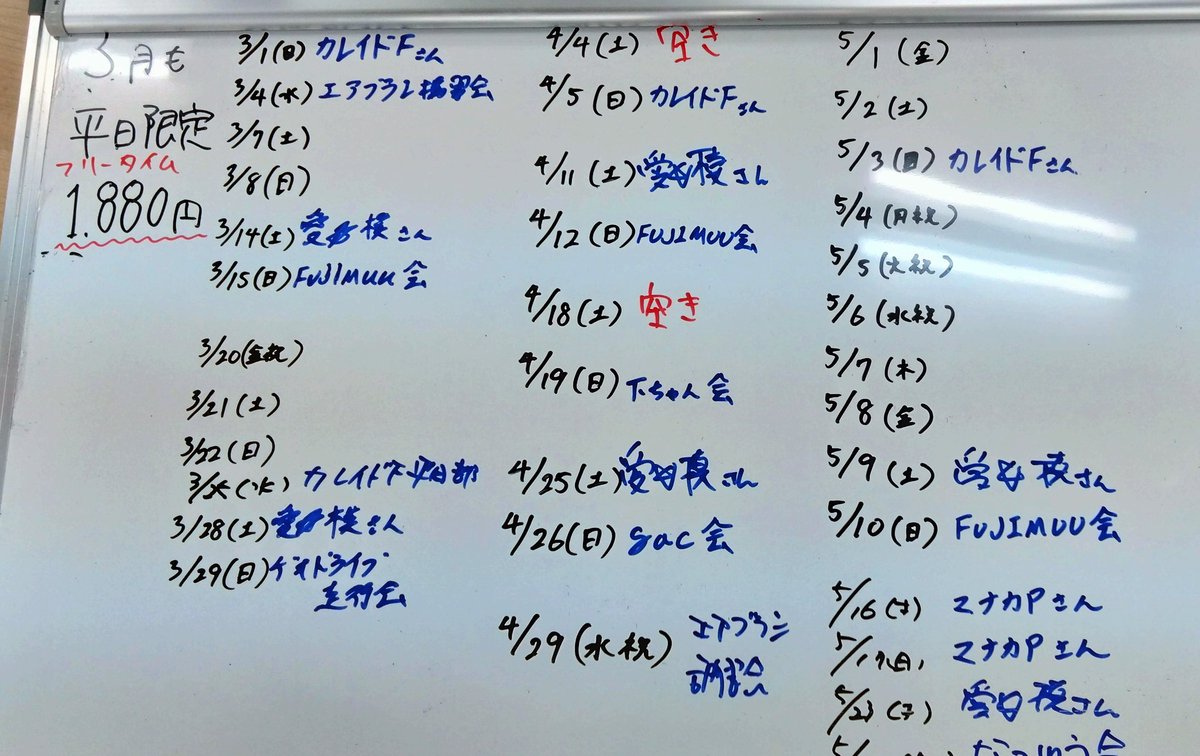 3月も
平日限定
フリータイム
1.880円
3/1(日) カレイドFさん
3/4(水) エアブラシ講習会
3/7(土)
3/8(日)
3/14(土) 愛母模さん
3/15(日) FUJIMUU会
3/20(金祝)
3/21(土)
3/22(日)
(水) カレイド平日部
3/28(土) 愛母模さん
3/29(日)
走行会
4/4(土) 空き
4/5(日) カレイドFさん
4/11(土) 愛母模さん
4/12(日) FUJIMUU会
4/18(土) 空き
4/19(日) 下ちゃん会
4/25(土) 愛母模さん
4/26(日) sac会
4/29(水祝) エアブラシ
講習会
5/1(金)
5/2(土)
5/3(日) カレイドFさん
5/4(月祝)
5/5(火祝)
5/6(水祝)
5/7(木)
5/8(金)
5/9(土) 愛母模さん
5/10(日) FUJIMUU会
5/16(土) マナカPさん
5/17(日) マナカPさん
5/23(土) 愛母模さん